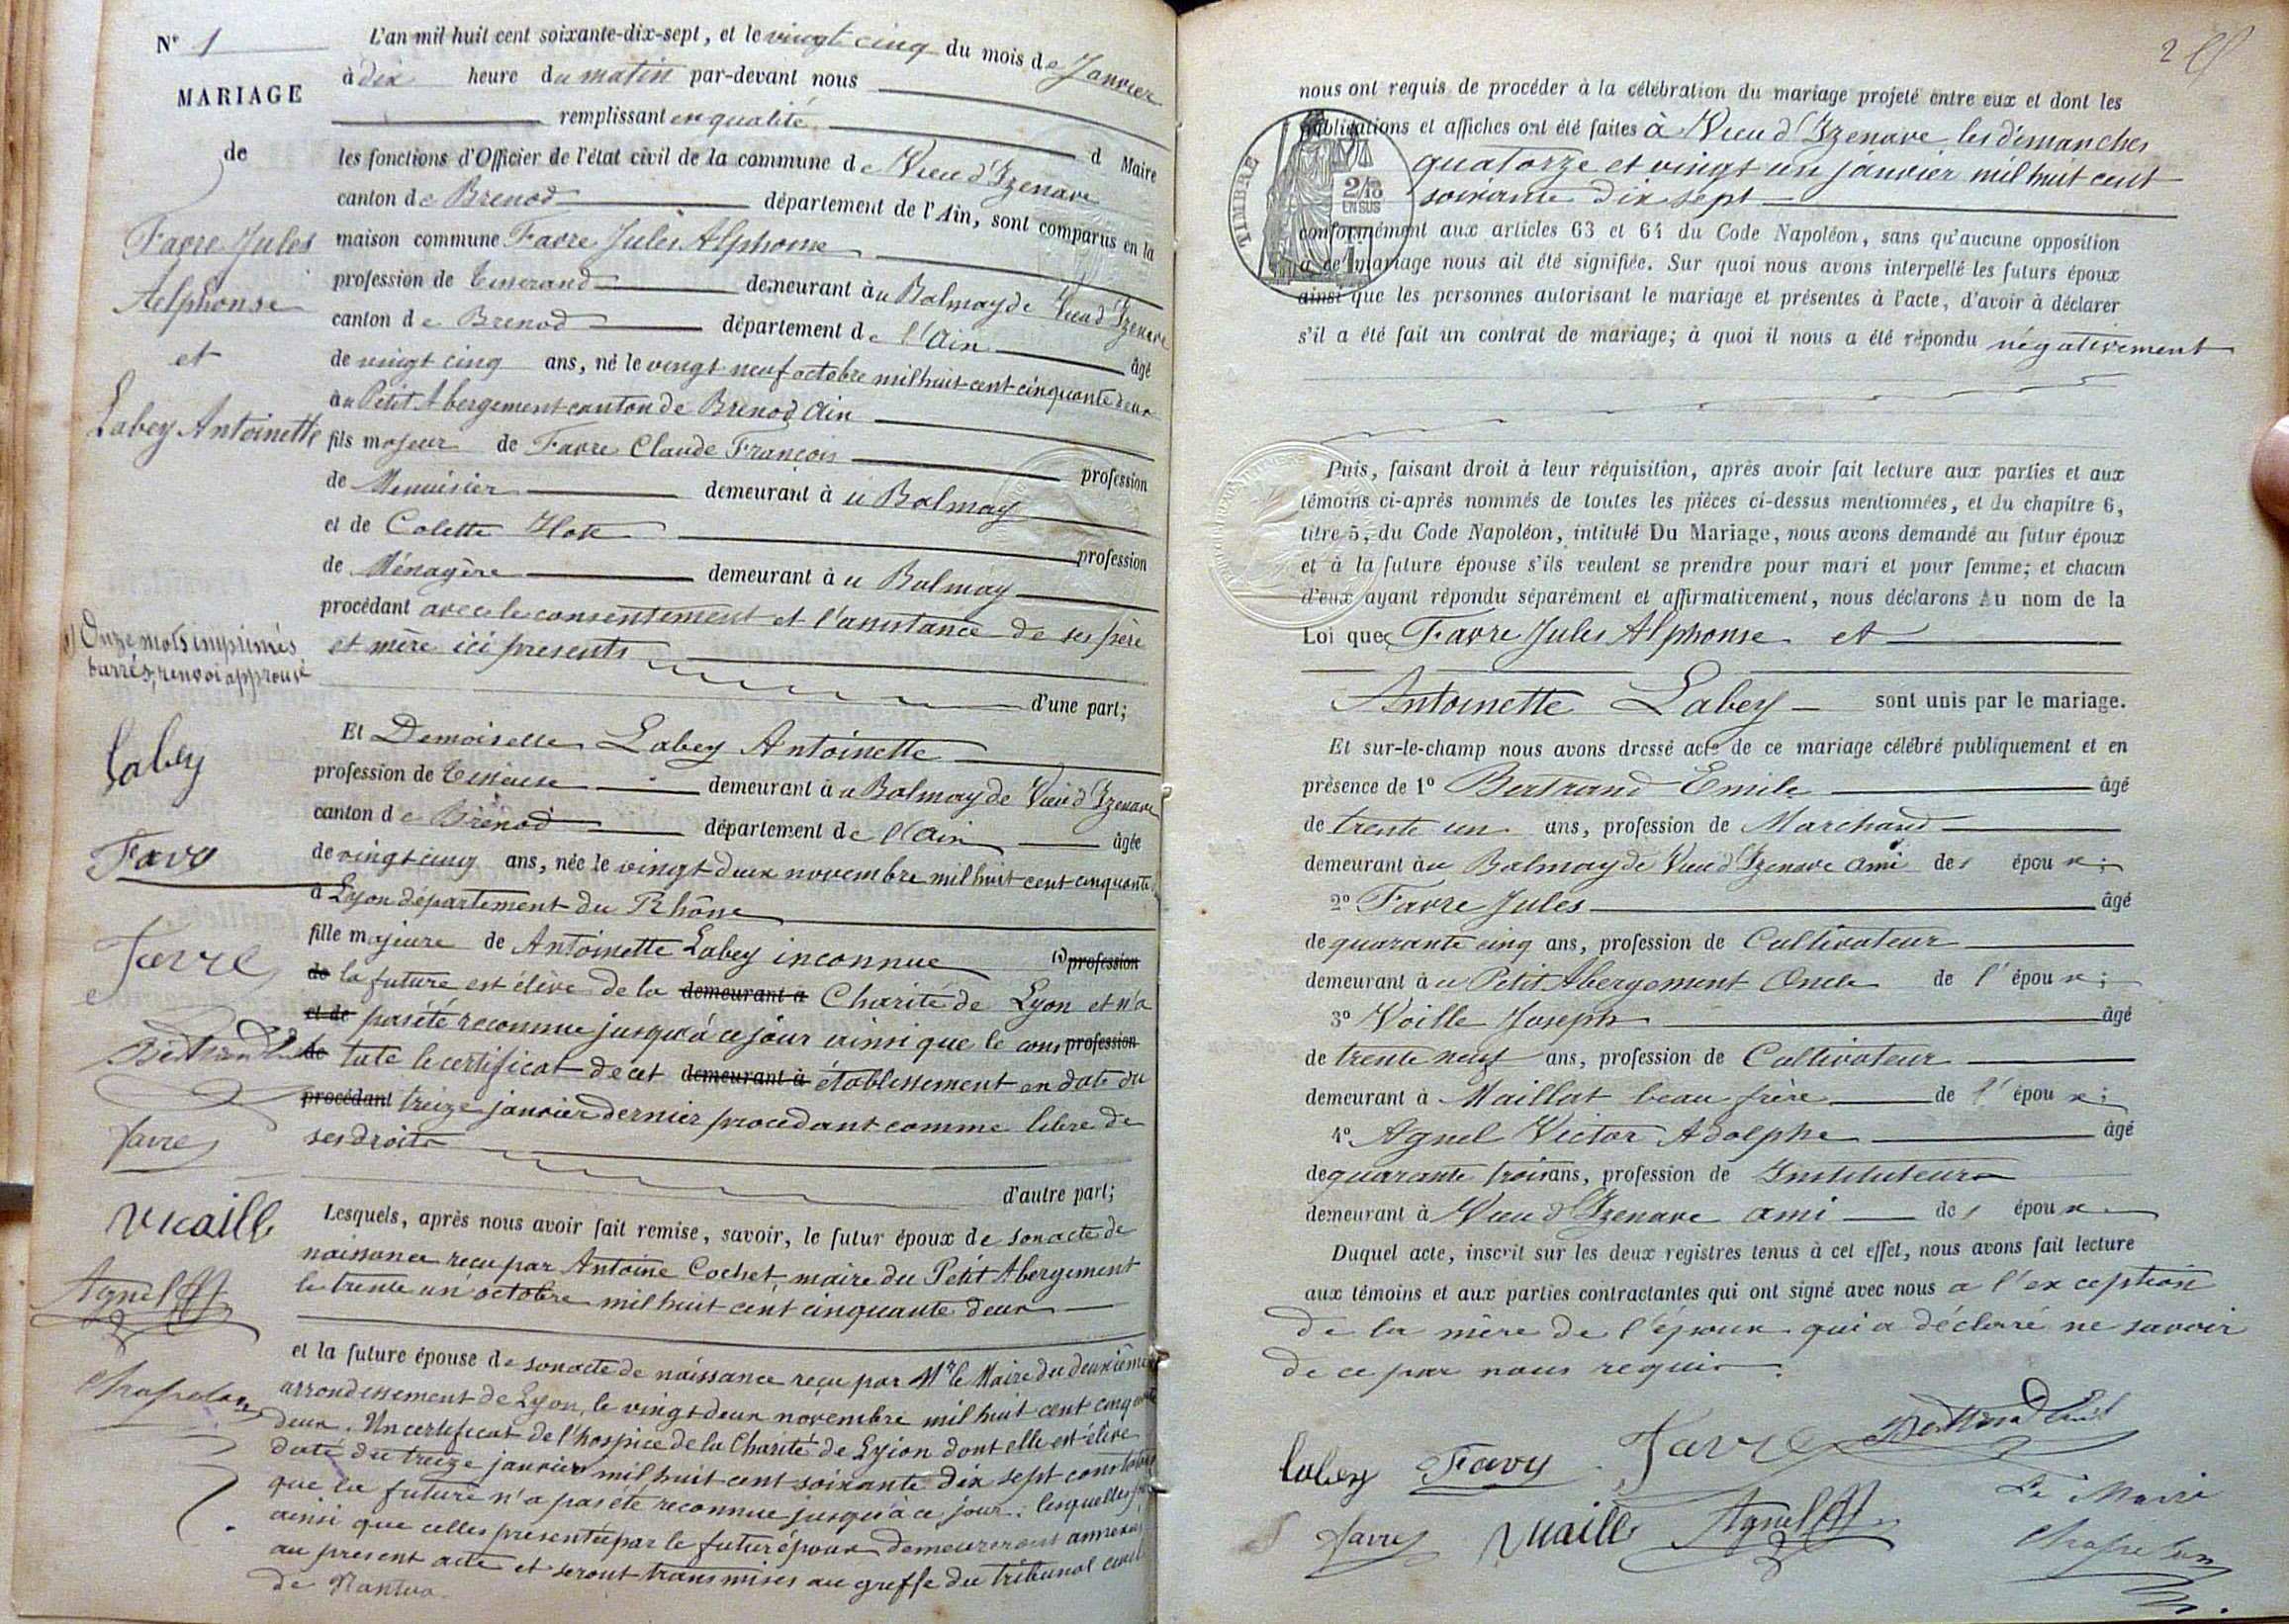 N° 1
MARIAGE
de
Favre Jules
Alphonse
et
Labey Antoinette
(1) Onze mots imprimés
barrés, renvoi approuvé
Labey
Favre
Bertrand
Favre
Vuaille
Agnel
Chapelan
L'an mil huit cent soixante-dix-sept, et le vingt cinq du mois de Janvier
à dix heure du matin par-devant nous
remplissant en qualité d Maire
les fonctions d'Officier de l'état civil de la commune de Vieu d'Izenave
canton de Brenod département de l'Ain, sont comparus en la
maison commune Favre Jules Alphonse
profession de Tisserand demeurant à u Balmay de Vieu d'Izenave
canton de Brenod département de l'Ain âgé
de vingt cinq ans, né le vingt neuf octobre mil huit cent cinquante deux
à u Petit Abergement canton de Brenod Ain
fils majeur de Favre Claude François profession
de Menuisier demeurant à u Balmay
et de Colette profession
de Ménagère demeurant à u Balmay
procédant avec le consentement et l'assistance de ses père
et mère ici presents
d'une part;
Et Demoiselle Labey Antoinette
profession de Tisseuse demeurant à u Balmay de Vieu d'Izenave
canton de Brénod département de l'Ain âgée
de vingt cinq ans, née le vingt deux novembre mil huit cent cinquante
à Lyon département du Rhône
fille majeure de Antoinette Labey inconnue (1) profession
de la future est élève de la demeurant à Charité de Lyon et n'a
et de pas été reconnue jusqu'à ce jour ainsi que le cons profession
de tate le certificat de cet demeurant à établissement en date du
procédant treize janvier dernier procédant comme libre de
ses droits
d'autre part;
Lesquels, après nous avoir fait remise, savoir, le futur époux de son acte de
naissance reçu par Antoine Cochet, maire du Petit Abergement
le trente un octobre mil huit cent cinquante deux
et la future épouse de son acte de naissance reçu par Mr le Maire du deuxième
arrondissement de Lyon, le vingt deux novembre mil huit cent cinquante
deux. Un certificat de l'hospice de la Charité de Lyon dont elle est élève
daté du treize janvier mil huit cent soixante dix sept constatant
que la future n'a pas été reconnue jusqu'à ce jour: lesquelles
ainsi que celles présentée par le futur époux demeureront annexées
au présent acte et seront transmises au greffe du tribunal civil
de Nantua
2
nous ont requis de procéder à la célébration du mariage projeté entre eux et dont les
publications et affiches ont été faites à Vieu d'Izenave les dimanches
quatorze et vingt un janvier mil huit cent
soixante dix sept
TIMBRE
2/10
EN SUS
conformément aux articles 63 et 64 du Code Napoléon, sans qu'aucune opposition
à ce mariage nous ait été signifiée. Sur quoi nous avons interpellé les futurs époux
ainsi que les personnes autorisant le mariage et présentes à l'acte, d'avoir à déclarer
s'il a été fait un contrat de mariage; à quoi il nous a été répondu négativement
Puis, faisant droit à leur réquisition, après avoir fait lecture aux parties et aux
témoins ci-après nommés de toutes les pièces ci-dessus mentionnées, et du chapitre 6,
titre 5, du Code Napoléon, intitulé Du Mariage, nous avons demandé au futur époux
et à la future épouse s'ils veulent se prendre pour mari et pour femme; et chacun
d'eux ayant répondu séparément et affirmativement, nous déclarons Au nom de la
Loi que Favre Jules Alphonse et
Antoinette Labey sont unis par le mariage.
Et sur-le-champ nous avons dressé acte de ce mariage célébré publiquement et en
présence de 1° Bertrand Emile âgé
de trente un ans, profession de Marchand
demeurant à u Balmay de Vieu d'Izenave ami des époux;
2° Favre Jules âgé
de quarante cinq ans, profession de Cultivateur
demeurant à u Petit Abergement Oncle de l'époux;
3° Voille Joseph âgé
de trente neuf ans, profession de Cultivateur
demeurant à Maillat beau frère de l'époux;
4° Agnel Victor Adolphe âgé
de quarante trois ans, profession de Instituteur
demeurant à Vieu d'Izenave ami des époux
Duquel acte, inscrit sur les deux registres tenus à cet effet, nous avons fait lecture
aux témoins et aux parties contractantes qui ont signé avec nous a l'exception
de la mère de l'époux qui a déclaré ne savoir
de ce par nous requis.
Labey Favre Favre Bertrand
Le Maire
Favre Vuaille Agnel Chapelan